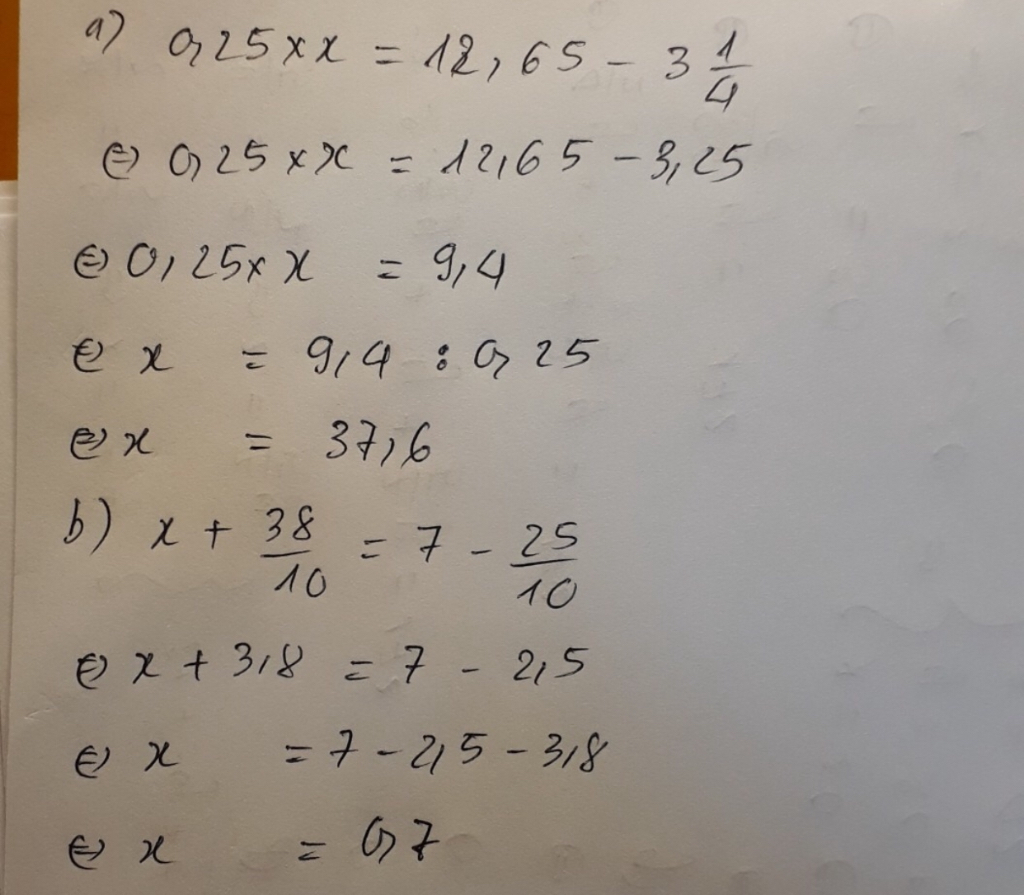 a) 0,25 × x = 12,65 - 3 1/4
⇔ 0,25 × x = 12,65 - 3,25
⇔ 0,25 × x = 9,4
⇔ x = 9,4 : 0,25
⇔ x = 37,6
b) x + 38/10 = 7 - 25/10
⇔ x + 3,8 = 7 - 2,5
⇔ x = 7 - 2,5 - 3,8
⇔ x = 0,7